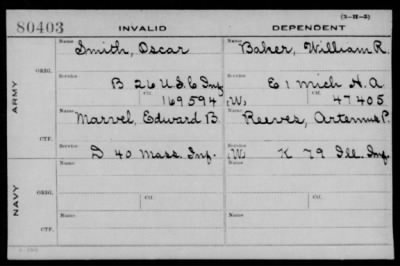 (3-H-5)
80403 INVALID DEPENDENT
Name Smith, Oscar Name Baker, William R.
ARMY
ORIG.
Service B 26 U.S.C. Inf Service E 1 Mich H.A.
Ctf. 169594 (W) Ctf. 47405
Name Marvel, Edward B. Name Reeves, Artemus P.
CTF.
Service D 40 Mass. Inf. Service (W) K 79 Ill. Inf.
NAVY
Name Name
ORIG.
Service Ctf. Service Ctf.
Name Name
CTF.
Service Service